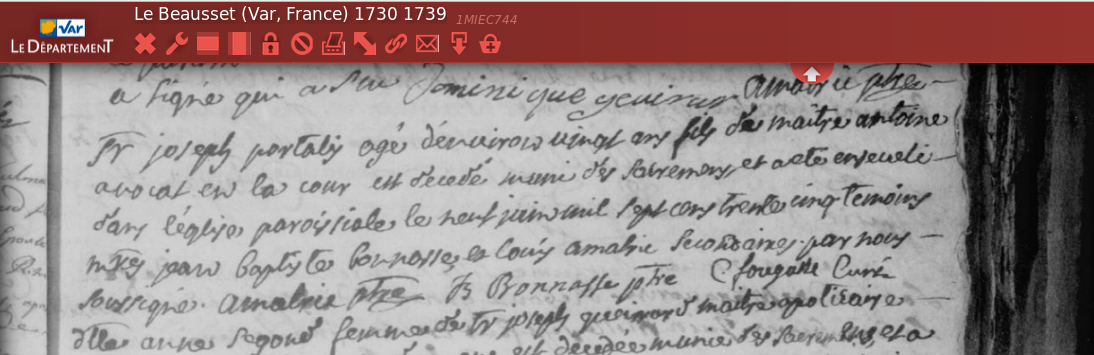 Le Beausset (Var, France) 1730 1739 1MIEC744
Var
LE DÉPARTEMENT
a signé qui a sçu Dominique amalric ptre
Sr joseph portalis agé d'environ vingt ans fils de maitre antoine
avocat en la cour est decedé muni des sacremens et a eté enseveli
dans léglise paroissiale le neuf juin mil sept cens trente cinq temoins
mres jean baptiste bonnasse et Louis amalric secondaires par nous
soussigné. amalric ptre JB Bonnasse ptre C fougasse Curé
dlle anne Segond femme de Sr joseph maitre apoticaire
est decedée munie des sacremens et a